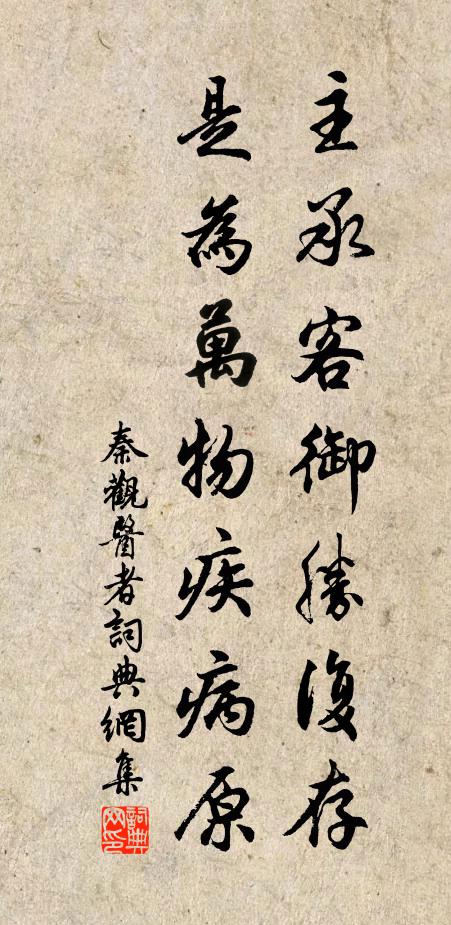 主承客御勝復存
是為萬物疾病原
秦觀醫者詞典網集
詞典網印